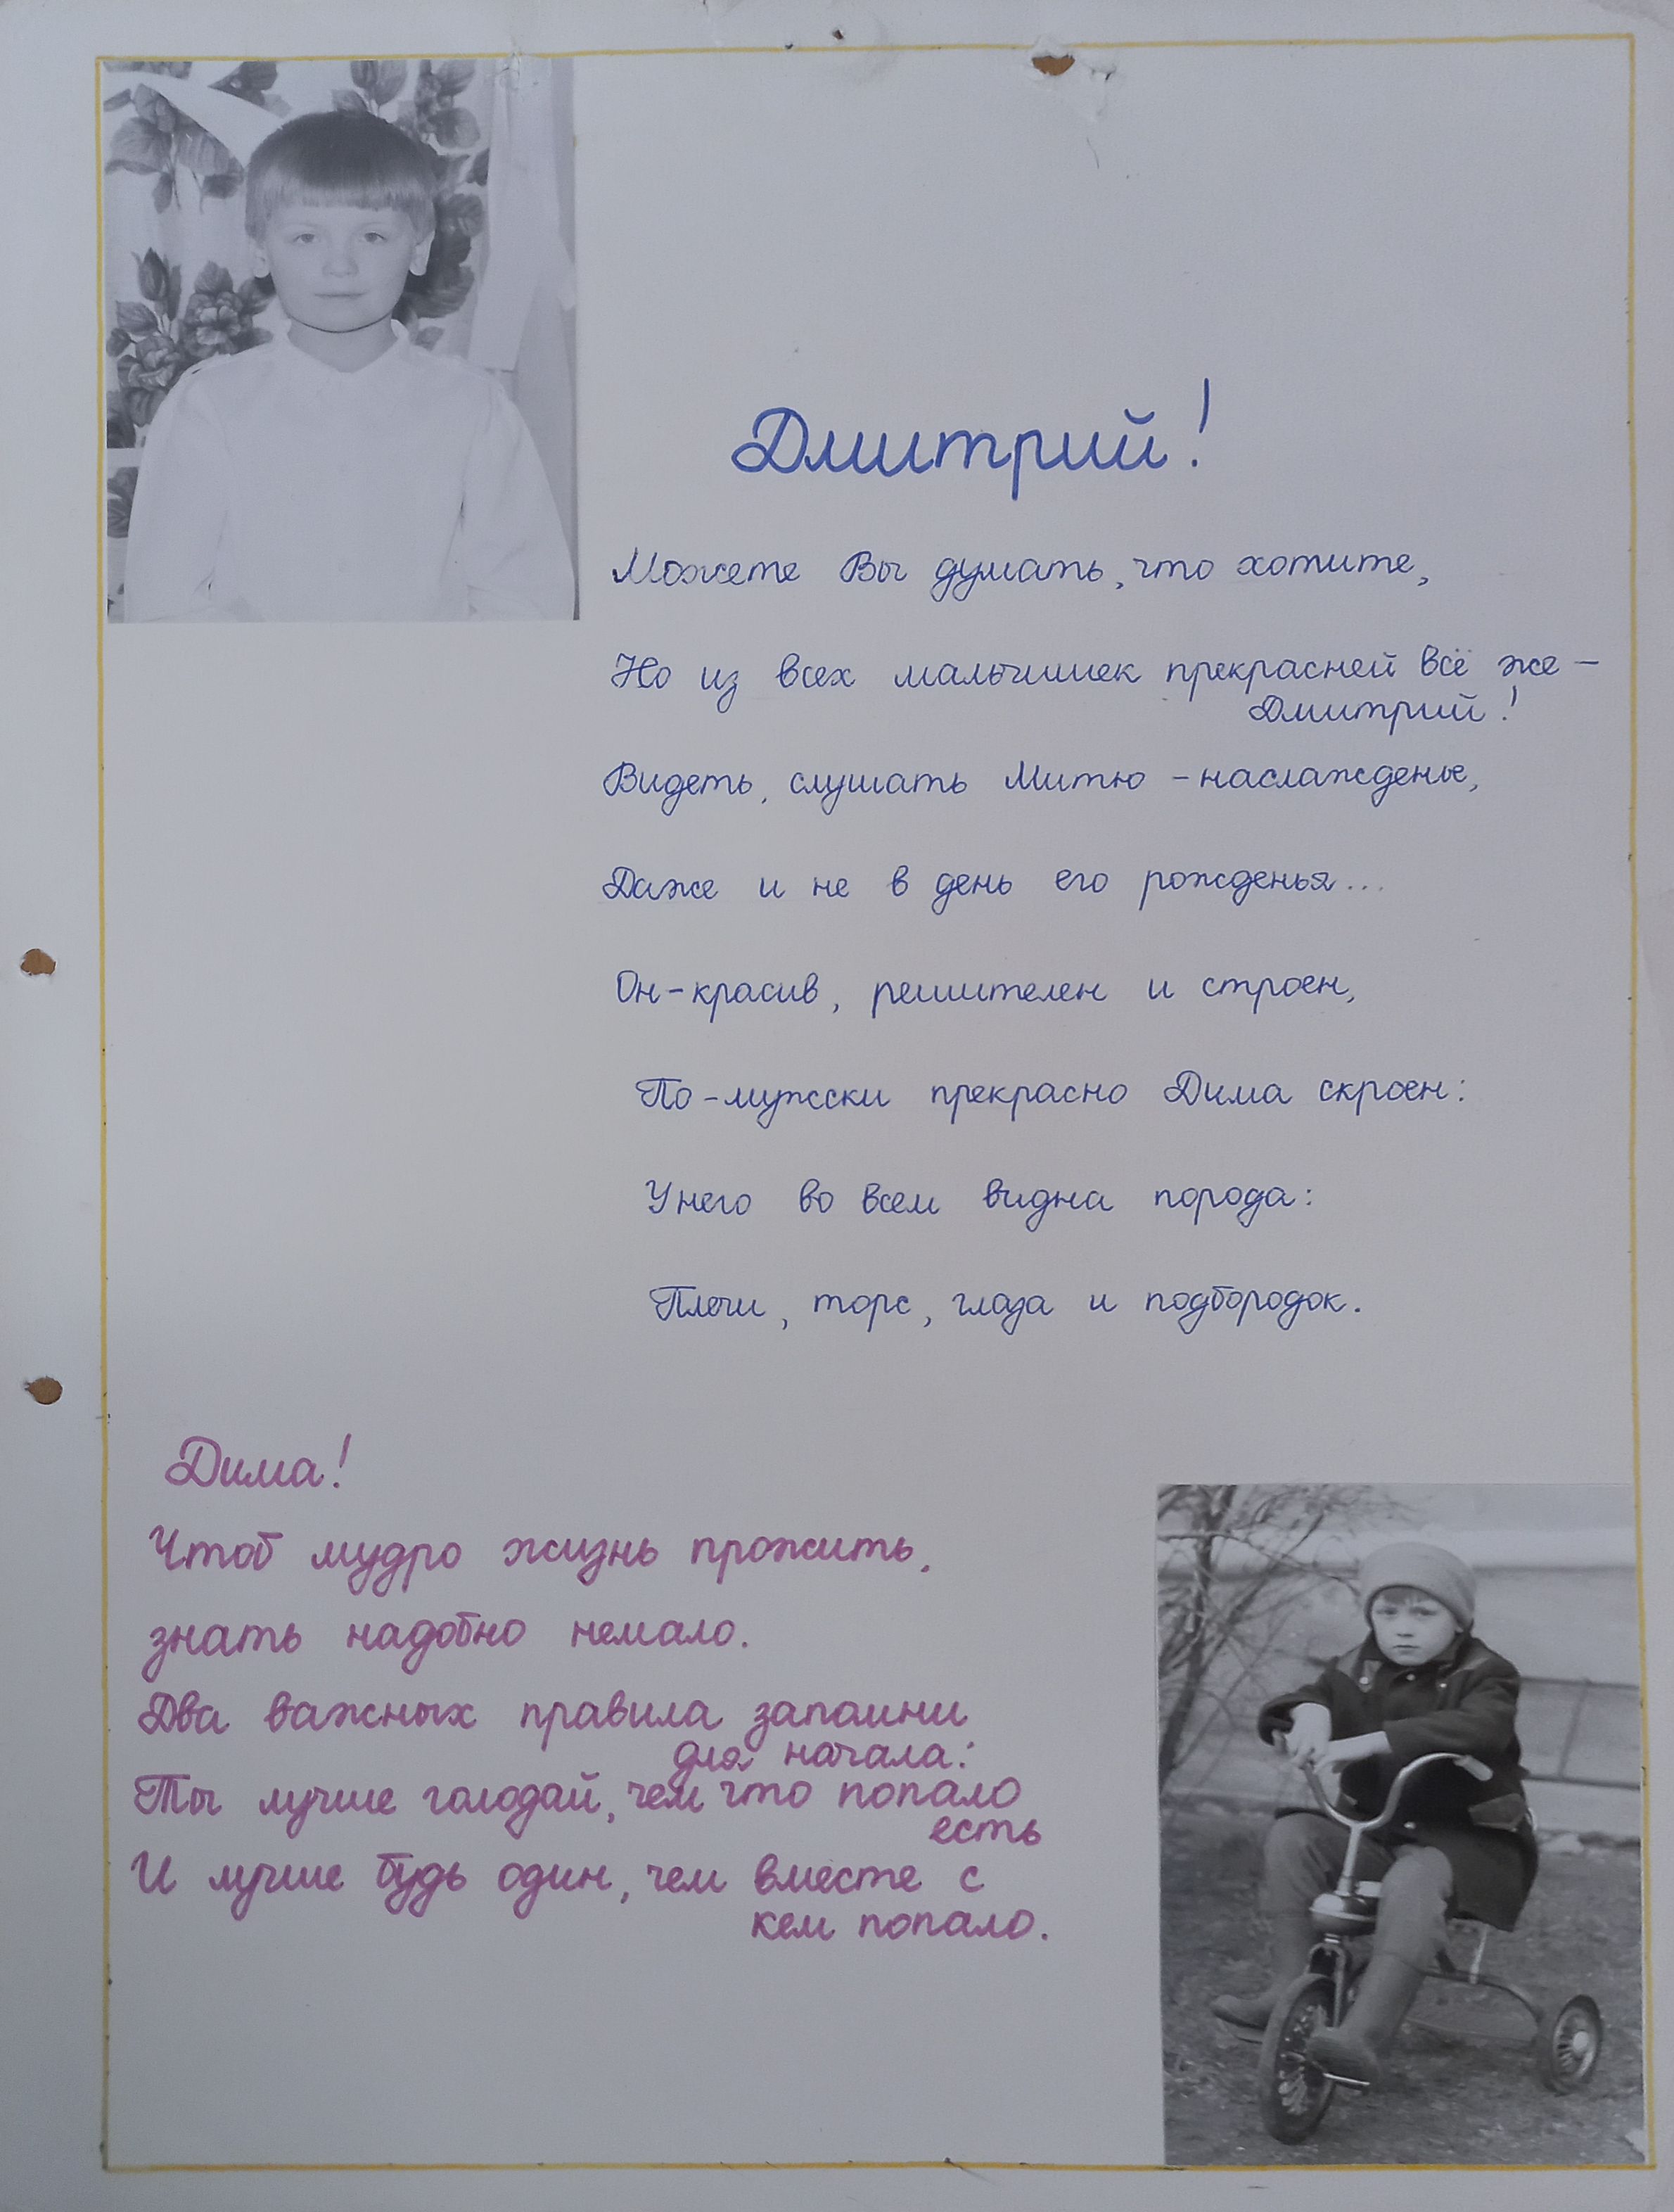 Дмитрий!
Можете Вы думать, что хотите,
Но из всех мальчишек прекрасней всё же -
Дмитрий!
Видеть, слушать Митю - наслажденье,
Даже и не в день его рожденья...
Он - красив, решителен и строен,
По-мужски прекрасно Дима скроен:
У него во всем видна порода:
Плечи, торс, глаза и подбородок.
Дима!
Чтоб мудро жизнь прожить,
знать надобно немало.
Два важных правила запомни
для начала:
Ты лучше голодай, чем что попало
есть
И лучше будь один, чем вместе с
кем попало.